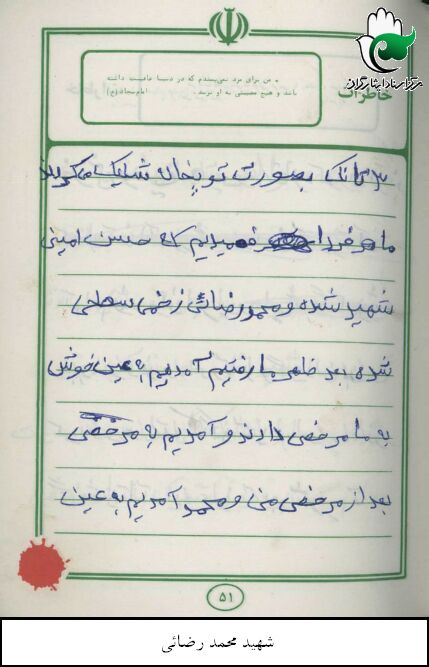 مرکز اسناد ایثارگران
خاطرات
« من برای مرد نمی‌پسندم که در دنیا عافیت داشته
باشد و هیچ مصیبتی به او نرسد. امام سجاد (ع)
۳ تانک بصورت توپخانه شلیک میکردند
ما فردا فهمیدیم که حسن امینی
شهید شده و محمد رضائی زخمی سطحی
شده بعد ظهر ما رفتیم آمدیم به عین خوش
به ما مرخصی دادند و آمدیم به مرخصی
بعد از مرخصی من و محمد آمدیم به عین
۵۱
شهید محمد رضائی